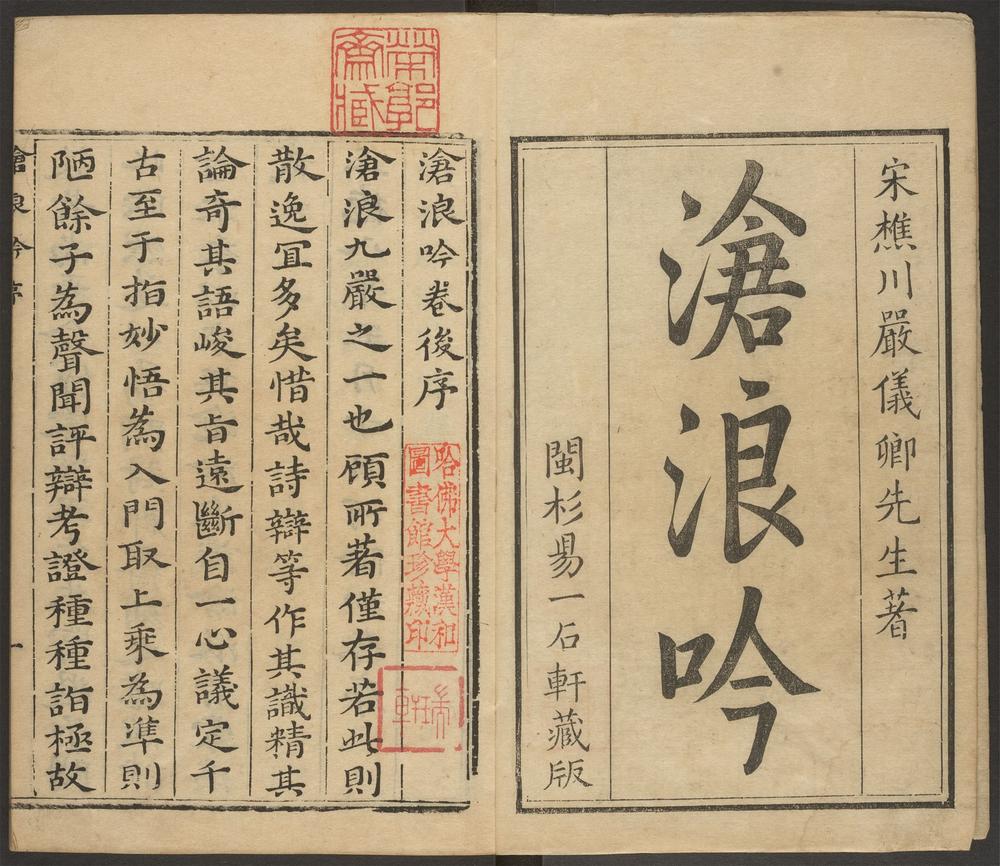 宋樵川嚴儀卿先生著
滄浪吟
閩杉昜一石軒藏版
滄浪吟卷後序
滄浪九嚴之一也顧所著僅存若此則
散逸冝多矣惜哉詩辯等作其識精其
論奇其語峻其旨遠斷自一心議定千
古至于指妙悟為入門取上乘為準則
陋餘子為聲聞評辯考證種種詣極故
哈佛大學漢和
圖書館珍藏印
滄浪吟序
一